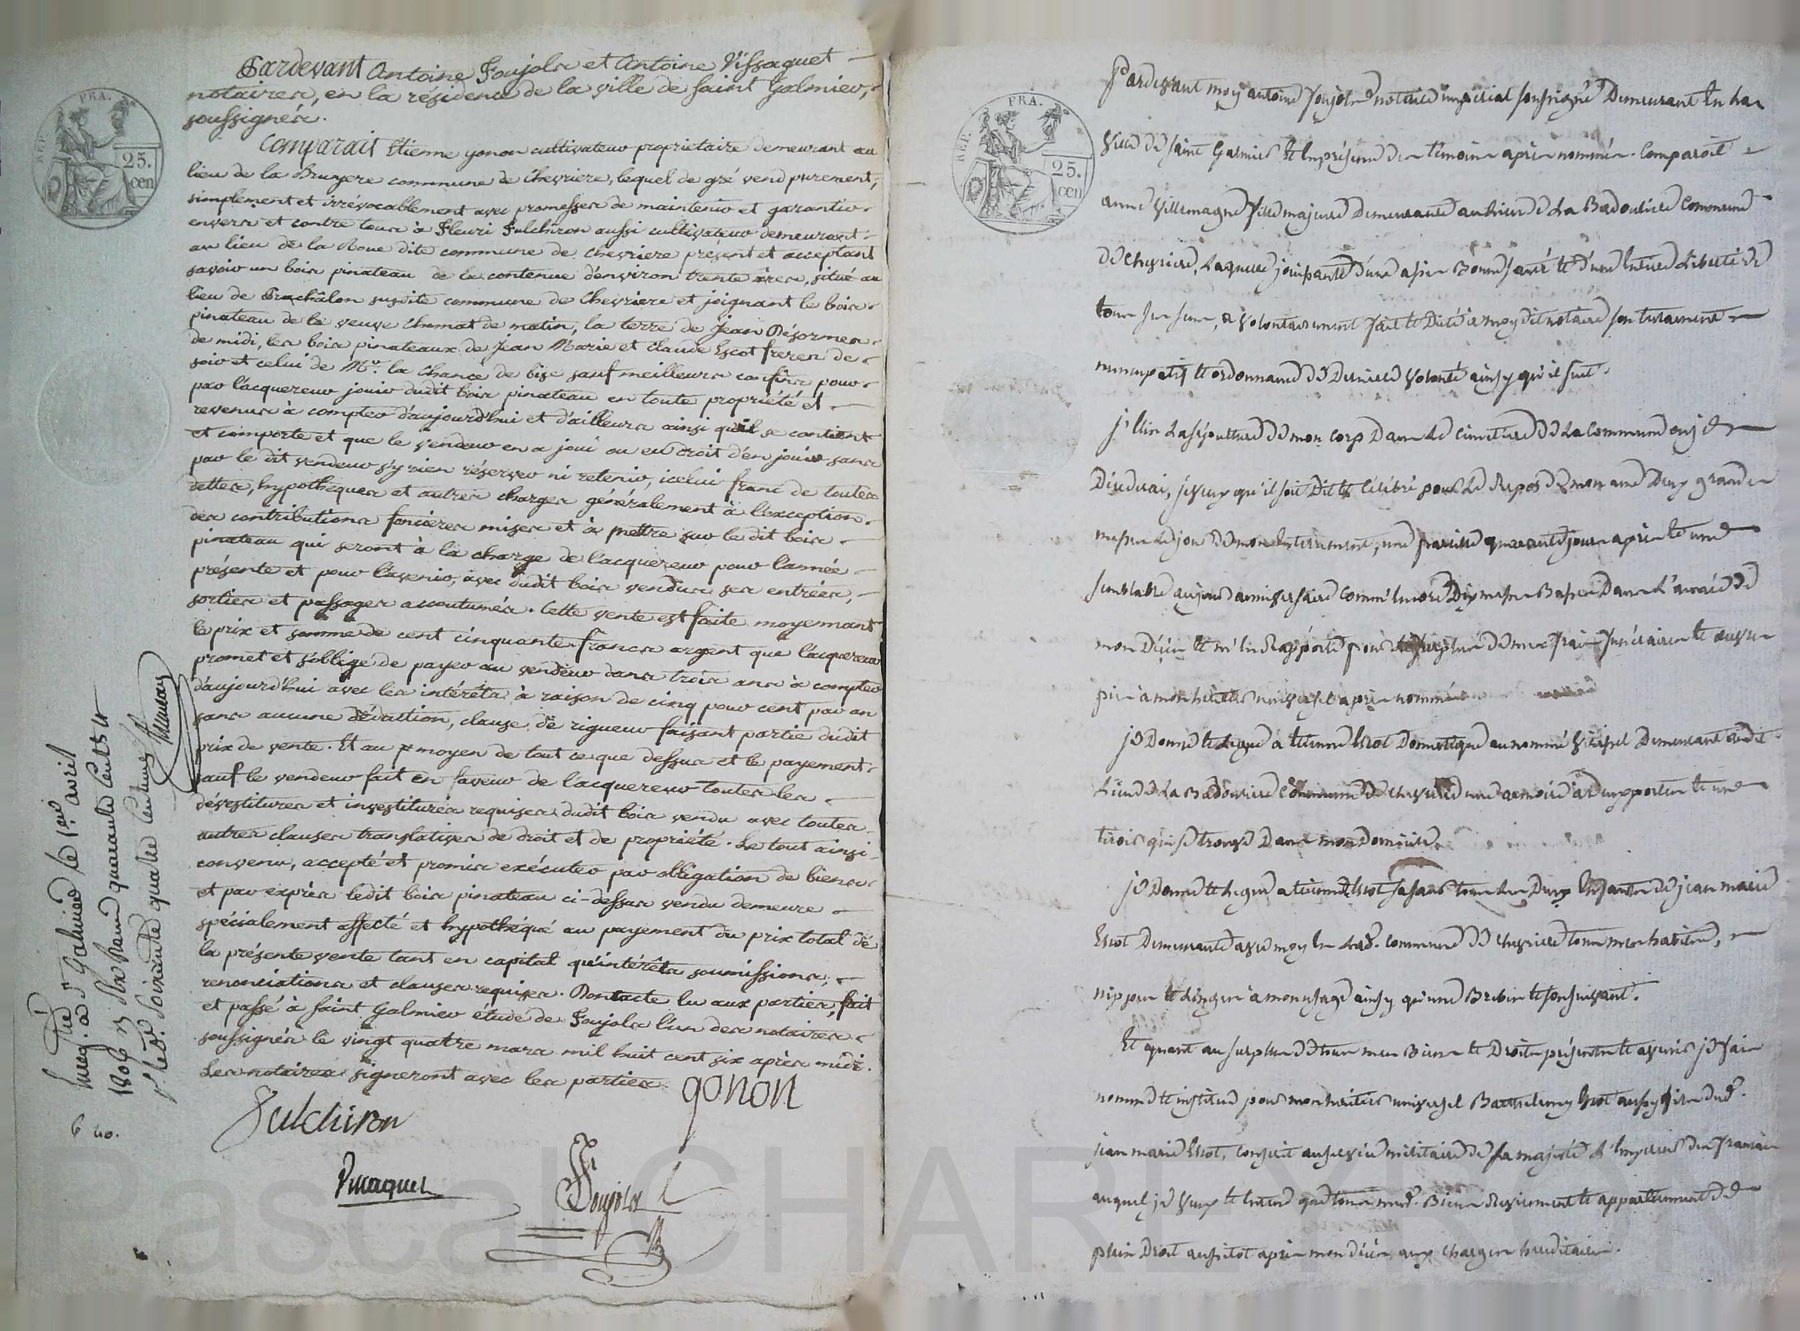 Pardevant Antoine Soujols et Antoine Vissaguet
notaires, en la résidence de la ville de Saint Galmier,
soussignés.
Comparait Etienne gonon cultivateur propriétaire demeurant au
lieu de la Bruyere commune de Chevriere, lequel de gré vend purement,
simplement et irrévocablement avec promesses de maintenir et garantir
envers et contre tous à Fleuri Fulchiron aussi cultivateur demeurant
au lieu de la Roue dite commune de Chevriere présent et acceptant
savoir un bois pinateau de la contenue d'environ trente ares, situé au
lieu de susdite commune de Chevriere et joignant le bois
pinateau de la veuve Chomat de matin, la terre de Jean Désormes
de midi, les bois pinateaux de Jean Marie et Claude Escot freres de
soir et celui de Mr. la Chance de bise sauf meilleurs confins pour
par l'acquereur jouir dudit bois pinateau en toute propriété et
revenus à compter d'aujourd'hui et d'ailleurs ainsi qu'il se contient
et comporte et que le vendeur en a joui ou eu droit d'en jouir sans
par le dit vendeur s'y rien réserver ni retenir, icelui franc de toutes
dettes, hypotheques et autres charges généralement à l'exception
des contributions foncières mises et à mettre sur le dit bois
pinateau qui seront à la charge de l'acquereur pour l'année
présente et pour l'avenir, avec dudit bois vendu ses entrées,
sorties et passages accoutumés. Cette vente est faite moyennant
le prix et somme de cent cinquante francs argent que l'acquereur
promet et s'oblige de payer au vendeur dans trois ans à compter
d'aujourd'hui avec les intérêts à raison de cinq pour cent par an
sans aucune déduction, clause de rigueur faisant partie dudit
prix de vente. Et au moyen de tout ce que dessus et le payement
sauf le vendeur fait en faveur de l'acquereur toutes les
dévestitures et investitures requises dudit bois vendu avec toutes
autres clauses translatives de droit et de propriété. Le tout ainsi
convenu, accepté et promis exécuter par obligation de biens
et par exprès ledit bois pinateau ci-dessus vendu demeure
spécialement affecté et hypothéqué au payement du prix total de
la présente vente tant en capital qu'intérêts soumissions,
renonciations et clauses requises. Dont acte lu aux parties, fait
et passé à Saint Galmier étude de Soujols l'un des notaires
soussignés le vingt quatre mars mil huit cent six après midi.
Les notaires signeront avec les parties.
gonon
fulchiron
Vissaguet
Soujols
Enregtré à St Galmier le 1er avril
1806
6 40.
REP. FRA.
25.
cen
Pardevant moy antoine Soujols notaire impérial soussigné Demeurant En la
Ville de Saint Galmier Et En présence des témoins après nommés. Comparoit
anne Villemagne fille majeure Demeurante au lieu de La Badouliere Commune
De Chevriere, Laquelle jouissante d'une assés Bonne santé et d'une Entiere Liberté de
tous ses sens, a volontairement fait et Dicté à moy dit notaire son testament
nuncupatif et ordonnance de Derniere volonté ainsy qu'il suit.
J'Elis La sépulture de mon Corps Dans Le Cimetiere de La Commune où je
Décederai, je veux qu'il soit Dit et Célébré pour Le Repos de mon ame Deux grandes
messes Le jour de mon Enterrement, une pareille quarante jours après et une
semblable au jour anniversaire Comm'Encore Dix messes Basses Dans L'année de
mon Décès Et m'En Rapporte pour le surplus de mes frais funéraires et œuvres
pies à mon héritier universel après nommé
je Donne et Legue à Etienne Escot Domestique au nommé Demeurant audit
Lieu de La Badouliere Commune de Chevriere une armoire à deux portes et une
tirois qui se trouve Dans mon Domicile.
je Donne et Legue à Etiennette Escot tous les Deux Enfants de jean marie
Escot Demeurante avec moy En Lad. Commune de Chevriere tous mes habits,
nippes et Linges à mon usage ainsy qu'une Brebis et son suivant.
Et quant au surplus de tous mes Biens et Droits présents et avenir je fais
nomme et institue pour mon héritier universel Barthelemy Escot aussy fils dud.
jean marie Escot, Conscrit au service militaire de sa majesté L'Empereur des français
auquel je veux et Entend que tous mesd. Biens Reviennent et appartiennent de
plein Droit aussitot après mon Décès aux charges héréditaires.
REP. FRA.
25.
cen
Pascal CHARLES